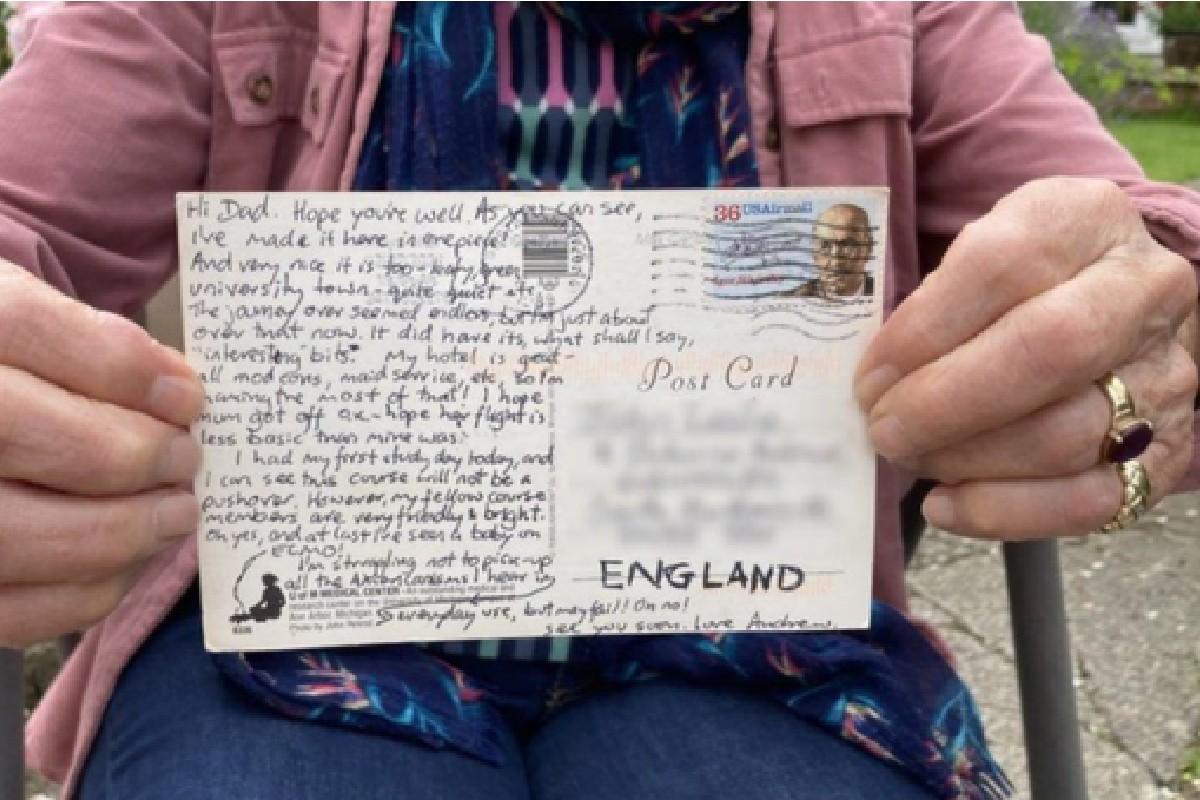 Hi Dad. Hope you're well. As you can see,
I've made it here in one piece!
And very nice it is too - leafy, green
university town - quite quiet etc.
The journey over seemed endless, but I'm just about
over that now. It did have its, what shall I say,
"interesting bits". My hotel is good -
all mod cons, maid service, etc, so I'm
having the most of that! I hope
mum got off ok - hope her flight is
less basic than mine was.
I had my first study day today, and
I can see this course will not be a
pushover. However, my fellow course
members are very friendly & bright.
Oh yes, and at last I've seen a baby on
ECMO!
I'm struggling not to pick-up
all the Americanisms I hear in
everyday use, but may fail! Oh no!
See you soon. Love Andrew.
36 USAirmail
Post Card
ENGLAND
U of M MEDICAL CENTER - An outstanding
research center on the
Ann Arbor, Michigan
Photo by John